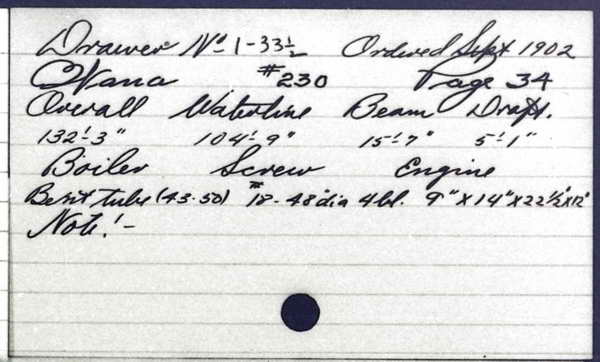 Drawer No 1-33½ Ordered Sept 1902
Wana #230 Page 34
Overall Waterline Beam Draft.
132'-3" 104'-9" 15'-7" 5'-1"
Boiler Screw Engine
Bent tube (43.50) #18-48"dia 4bl. 9"x14"x22½"x12"
Note:-